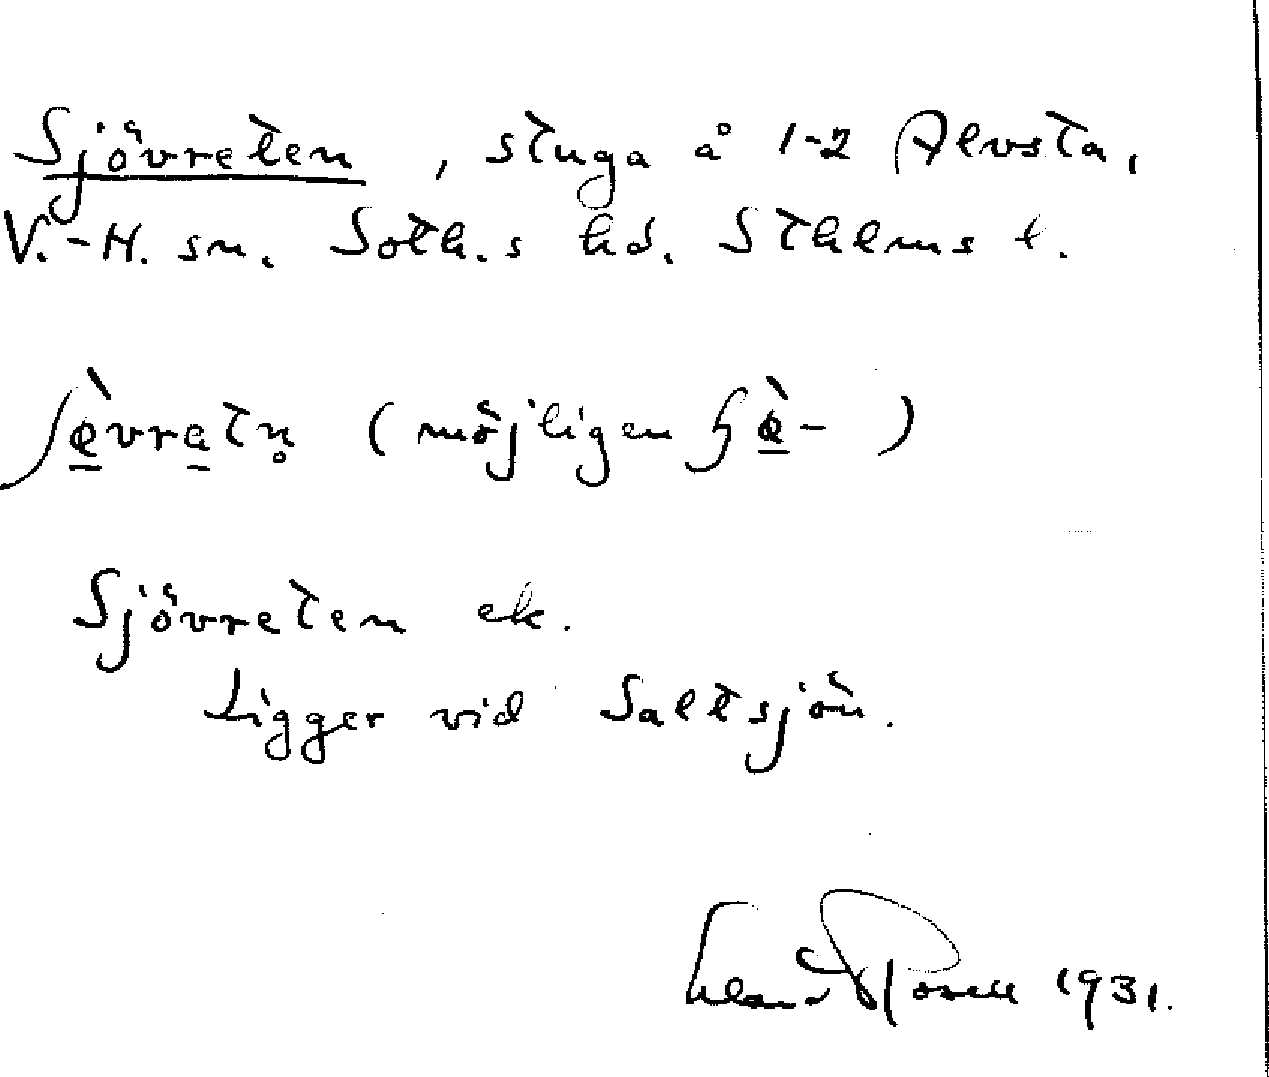 Sjövreten, stuga å 1-2 Alvsta,
V.-H. sn. Soth.s hd. Sthlms l.
ʃə̀vrętn̥ (möjligen ʃə̀- )
Sjövreten ek.
Ligger vid Saltsjön.
1931.